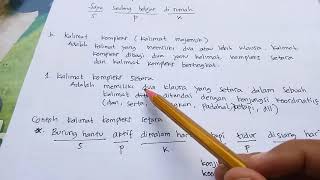 Saya sedang belajar di rumah
S P K
b. Kalimat kompleks (kalimat majemuk)
Adalah kalimat yang memiliki dua atau lebih klausa. Kalimat
kompleks dibagi dua yaitu kalimat kompleks setara
dan kalimat kompleks bertingkat.
1. Kalimat kompleks setara
Adalah memiliki dua klausa yang setara dalam sebuah
kalimat ditandai dengan konjungsi koordinatif
(dan, serta, padahal, tetapi, dll)
Contoh kalimat kompleks setara
Burung hantu aktif dimalam hari tidur disiang
S P K P